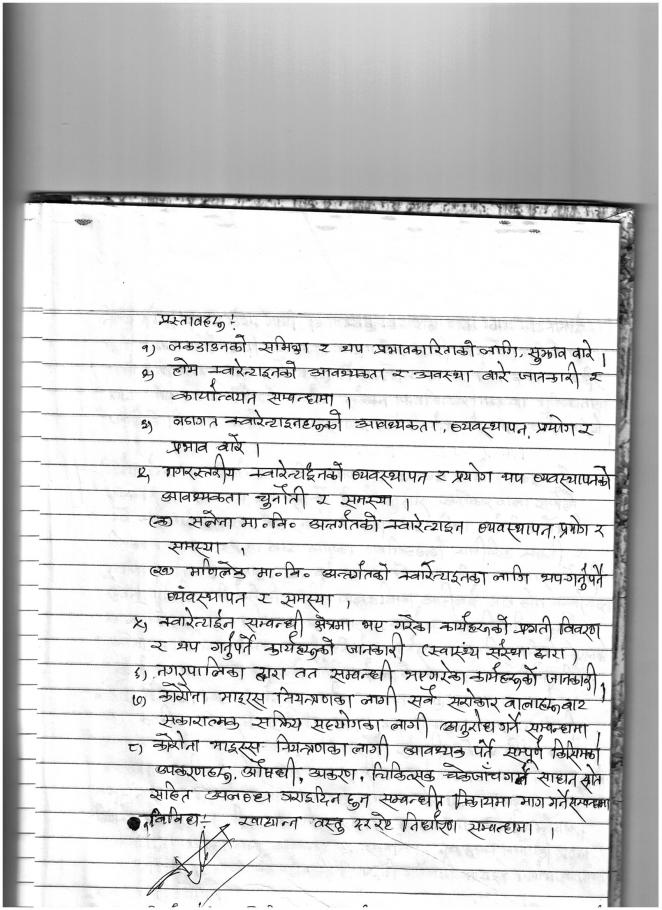 प्रस्तावहरु:
१) लकडाउनको समिक्षा र थप प्रभावकारिताको लागि, सुझाव बारे ।
२) होम क्वारेन्टाइनको आवश्यकता र अवस्था बारे जानकारी र
कार्यान्वयन सम्बन्धमा ।
३) वडागत क्वारेन्टाइनहरुको आवश्यकता, व्यवस्थापन, प्रयोग र
प्रभाव बारे ।
४) नगरस्तरीय क्वारेन्टाईनको व्यवस्थापन र प्रयोग थप व्यवस्थापनको
आवश्यकता चुनौती र समस्या ।
(क) सलेना मा॰वि॰ अन्तर्गतको क्वारेन्टाइन व्यवस्थापन, प्रयोग र
समस्या ।
(ख) मणिलेक मा॰वि॰ अन्तर्गतको क्वारेन्टाइनका लागि थप गर्नुपर्ने
व्यवस्थापन र समस्या ।
५) क्वारेन्टाईन सम्बन्धी क्षेत्रमा भए गरेका कार्यहरुको प्रगती विवरण
र थप गर्नुपर्ने कार्यहरुको जानकारी (स्वास्थ्य संस्था द्वारा)
६) नगरपालिका द्वारा तत सम्बन्धी भएगरेका कार्यहरुको जानकारी ।
७) कोरोना भाइरस नियन्त्रणका लागी सबै सरोकारवालाहरुबाट
सकारात्मक सक्रिय सहयोगका लागी अनुरोध गर्ने सम्बन्धमा ।
८) कोरोना भाइरस नियन्त्रणका लागी आवश्यक पर्ने सम्पूर्ण किसिमका
उपकरणहरु, औषधी, उपकरण, चिकित्सक चेकजाँच गर्ने साधन स्रोत
सहित उपलब्ध गराइदिन हुन सम्बन्धीत निकायमा माग गर्ने सम्बन्धमा
विविध:- खाद्यान्न वस्तु दररेट निर्धारण सम्बन्धमा ।